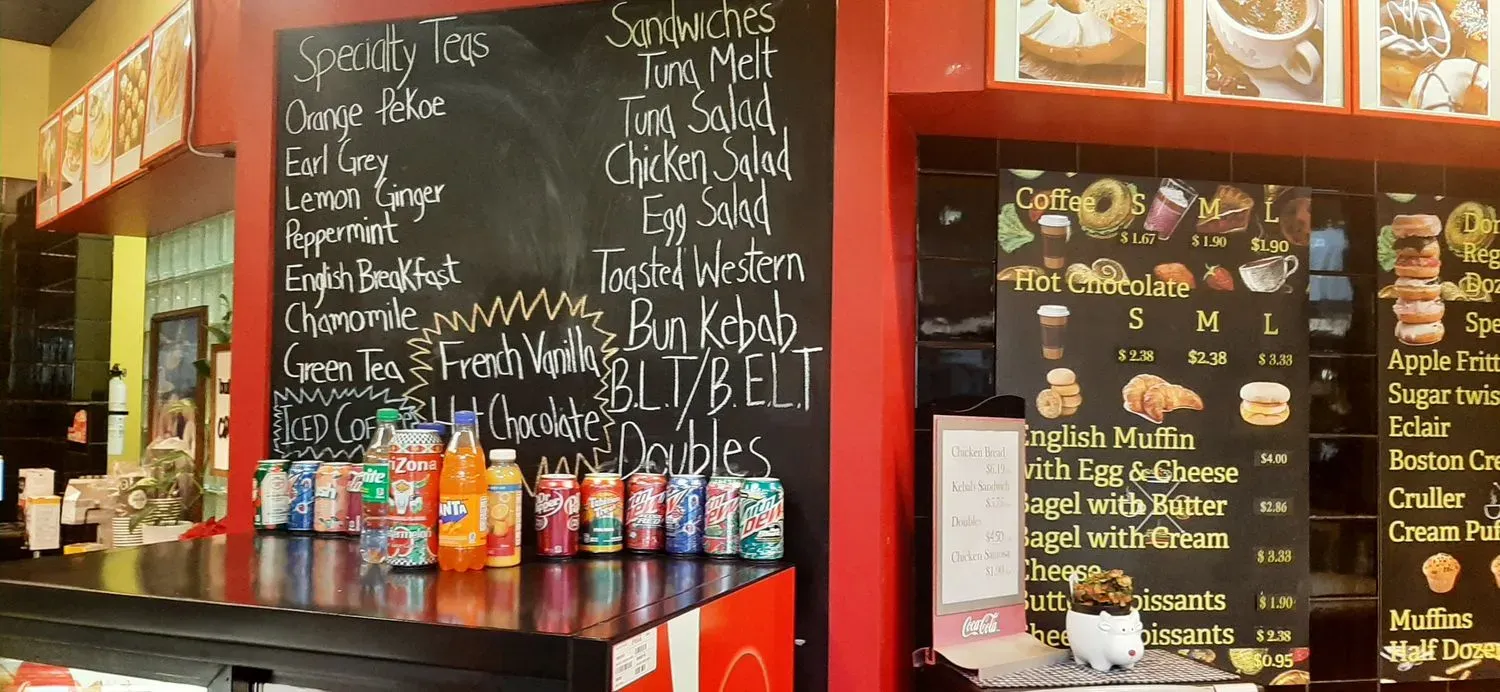 Specialty Teas
Orange Pekoe
Earl Grey
Lemon Ginger
Peppermint
English Breakfast
Chamomile
Green Tea
ICED
French Vanilla
Hot Chocolate
Sandwiches
Tuna Melt
Tuna Salad
Chicken Salad
Egg Salad
Toasted Western
Bun Kebab
B.L.T/B.E.L.T
Doubles
Coffee S M L
$1.67 $1.90 $1.90
Hot Chocolate
S M L
$2.38 $2.38 $3.33
English Muffin
with Egg & Cheese $4.00
Bagel with Butter $2.86
Bagel with Cream
Cheese $3.33
Butt oissants $1.90
hee oissants $2.38
$0.95
Chicken Bread
$6.19
Kebab Sandwich
Doubles
$4.50
Chicken Samosa
$1.90
Coca-Cola
Don
Reg
Doz
Spe
Apple Fritt
Sugar twis
Eclair
Boston Cre
Cruller
Cream Puf
Muffins
Half Dozen
Sprite
AriZona
FANTA